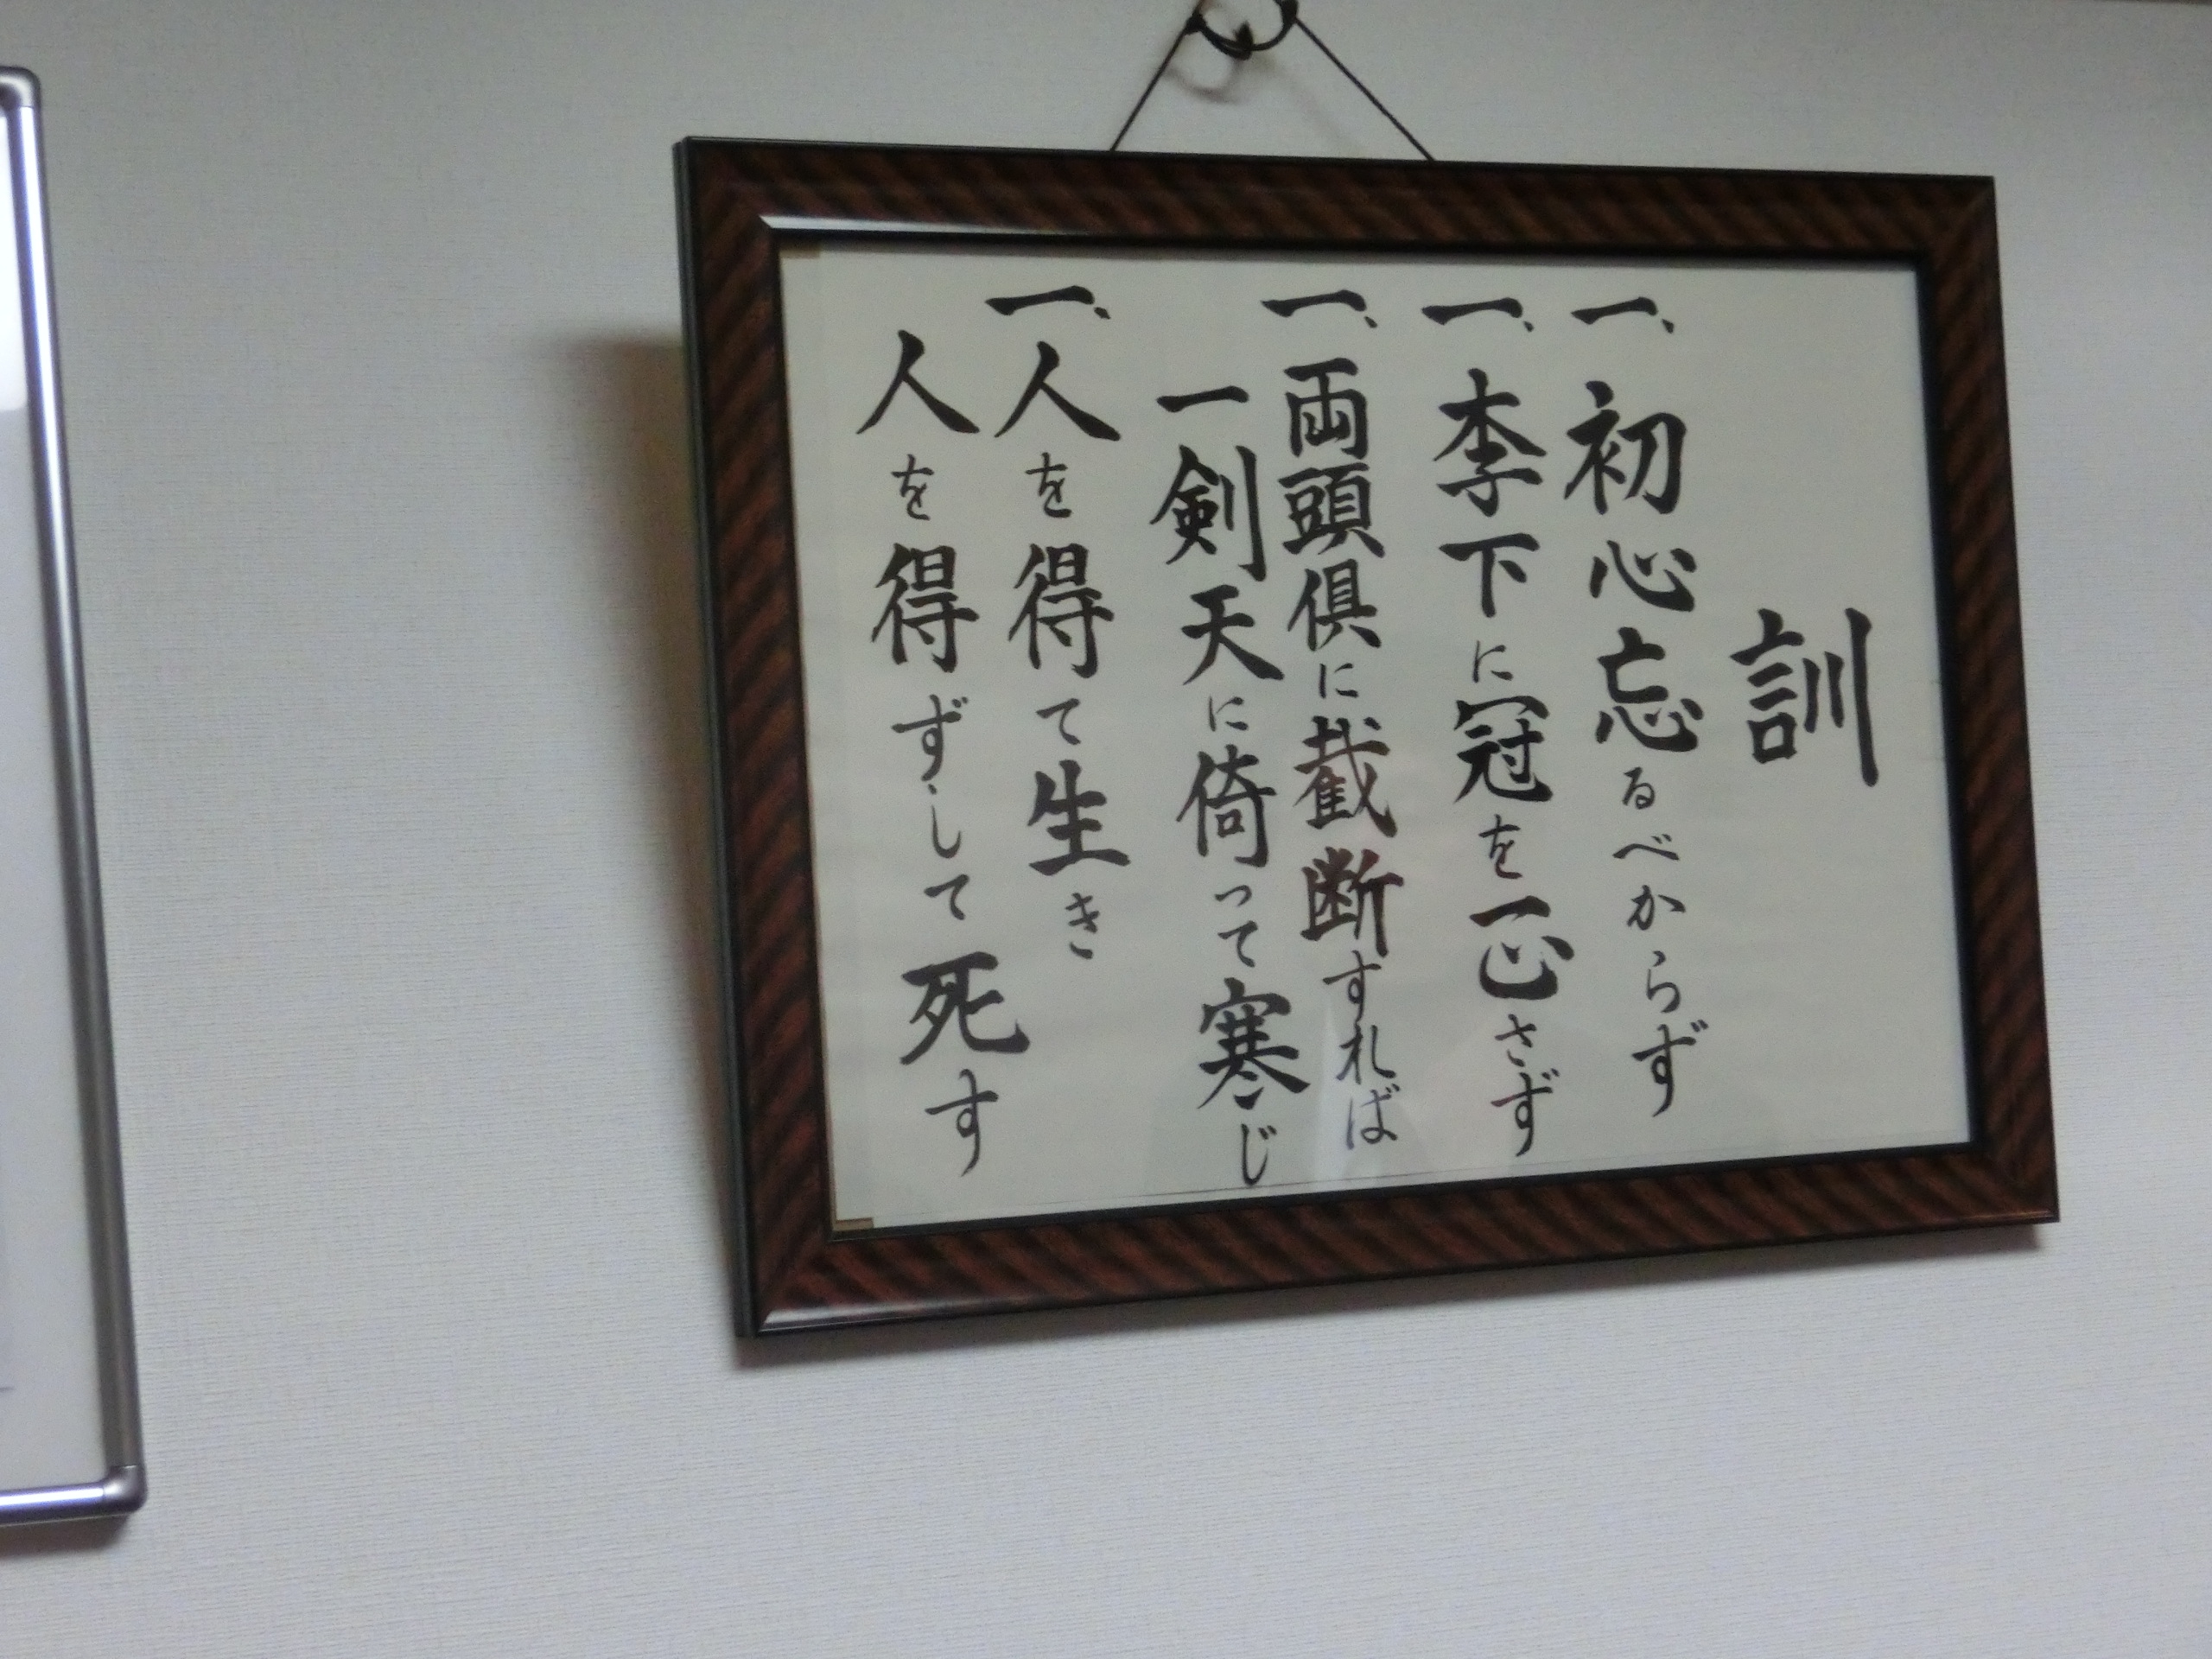 訓
一、初心忘るべからず
一、李下に冠を正さず
一、両頭倶に截断すれば
一剣天に倚って寒じ
一、人を得て生き
人を得ずして死す